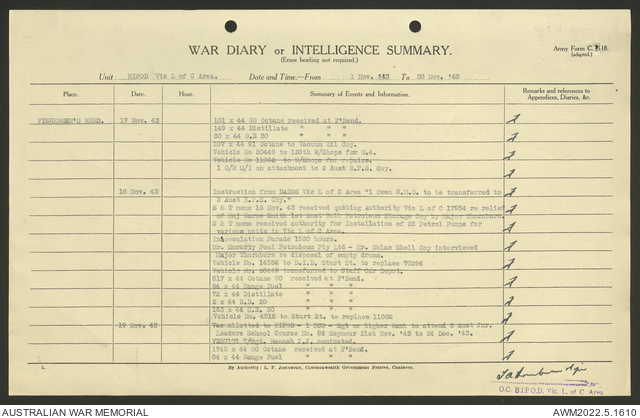 WAR DIARY or INTELLIGENCE SUMMARY.
(Erase heading not required.)
Army Form C.
(adapted.)
Unit BIPOD Vic L of C Area. Date and Time.—From 1 Nov. '43 To 30 Nov. '43
Place. Date. Hour. Summary of Events and Information. Remarks and references to Appendices, Diaries, &c.
FISHERMEN'S BEND. 17 Nov. 43 101 x 44 80 Octane received at F'Bend.
149 x 44 Distillate " " "
30 x 44 O.E 30 " " "
107 x 44 91 Octane to Vacuum Oil Coy.
Vehicle No 20649 to 120th W/Shops for
Vehicle No 11002 to W/Shops for repairs.
1 O/R M/I on attachment to 2 Aust B.P.S. Coy.
18 Nov. 43 Instruction from DADOS Vic L of C Area "1 Owen S.M.G. to be transferred to
2 Aust B.P.S. Coy."
S & T memo 16 Nov. 43 received quoting Authority Vic L of C 17954 re relief
of Maj Warne Smith 1st Aust Bulk Petroleum Storage Coy by Major Thornburn.
S & T memo received authority for Installation of 23 Petrol Pumps for
various units in Vic L of C Area.
Innoculation Parade 1530 hours.
Mr. Morarty Pool Petroleum Pty Ltd - Mr. Nolan Shell Coy interviewed
Major Thornburn re disposal of empty drums.
Vehicle No. 14554 to D.I.D. Sturt St. to replace 70294
Vehicle No. 20649 transferred to Staff Car Depot.
517 x 44 80 Octane received at F'Bend.
64 x 44 Range Fuel " " "
72 x 44 Distillate " " "
2 x 44 D.D. 20 " " "
153 x 44 O.E. 30 " " "
Vehicle No. 4515 to Sturt St. to replace 11002
19 Nov. 43 Vac allotted to BIPOD - 1 NCO - Sgt or higher Rank to attend 2 Aust Jnr.
Leaders School Course No. 86 Seymour 21st Nov. '43 to 24 Dec. '43.
Hannah J.J. nominated.
1748 x 44 80 Octane received at F'Bend.
84 x 44 Range Fuel " " "
By Authority: L. F. Johnston, Commonwealth Government Printer, Canberra.
O.C. B.I.P.O.D. Vic. L. of C. Area
AUSTRALIAN WAR MEMORIAL
AWM2022.5.1610